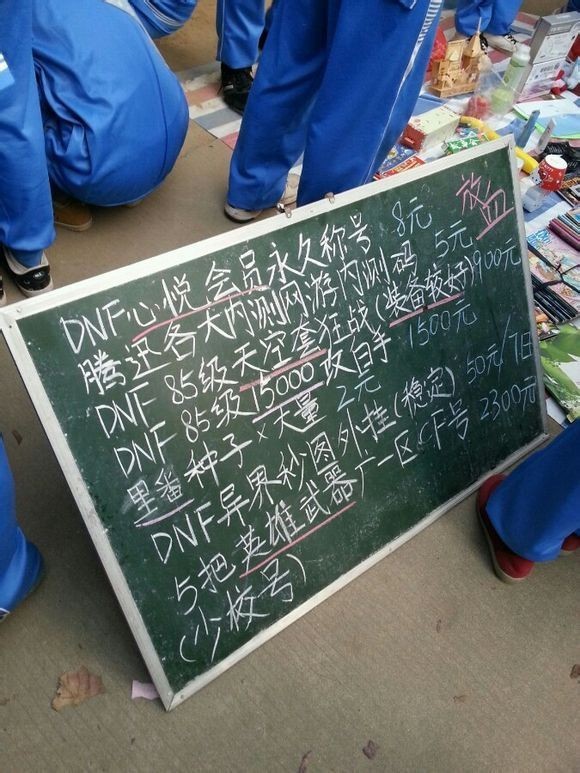 DNF心悦会员永久称号 8元
放血
腾迅各大内测网游内测码 5元
DNF 85级天空套狂战(装备较好)900元
DNF 85级15000攻白手 1500元
里番种子×大量 2元
DNF异界秒图外挂(稳定) 50元/1日
5把英雄武器广一区CF号 2300元
(少校号)